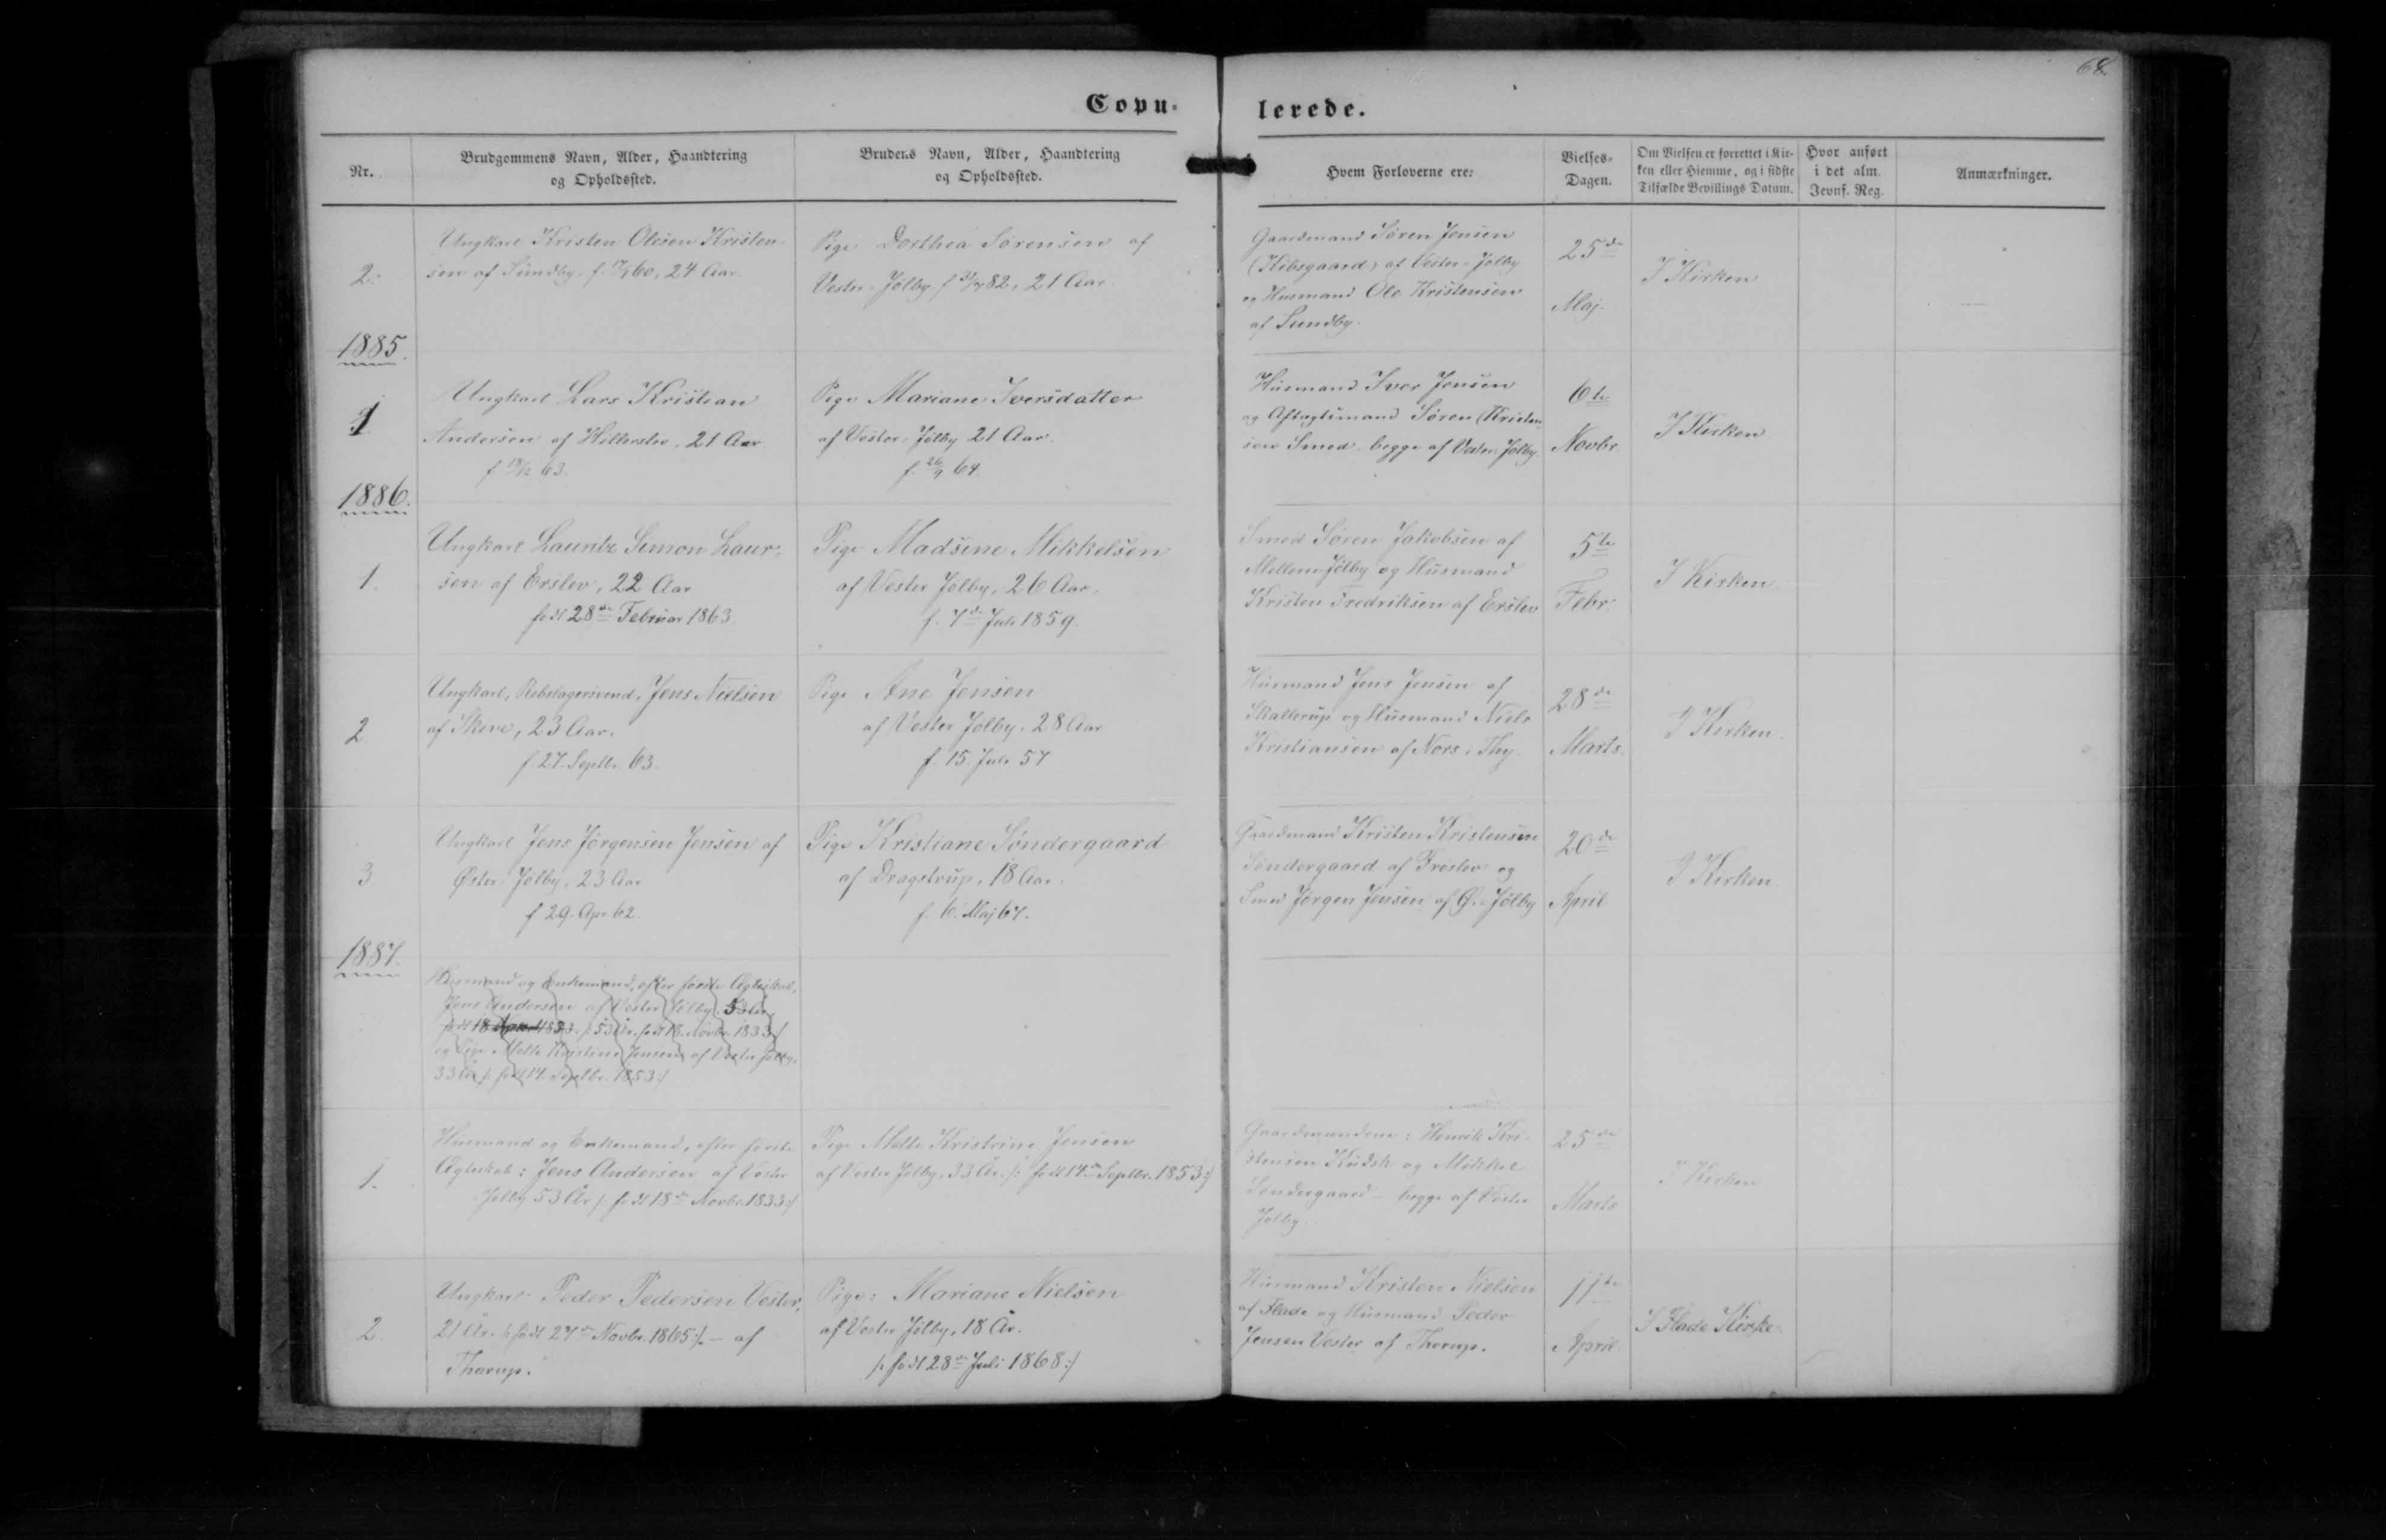 68.
Copu=
lerede.
Nr.
Brudgommens Navn, Alder, Haandtering
og Opholdssted.
Brudens Navn, Alder, Haandtering
og Opholdssted.
Hvem Forloverne ere:
Vielses=
Dagen.
Om Vielsen er forrettet i Kir-
ken eller Hjemme, og i sidste
Tilfælde Bevillings Datum.
Hvor anført
i det alm.
Jevnf. Reg.
Anmærkninger.
2.
Ungkarl Kristen Olesen Kristen-
sen af Sundby, f. 60, 24 Aar.
Pige Dorthea Sørensen af
Vester-Jølby f. 82, 21 Aar.
Gaardmand Søren Jensen
(Kibsgaard) af Vester-Jølby
og Husmand Ole Kristensen
af Sundby.
25de
Maj.
I Kirken
1885.
1
Ungkarl Lars Kristian
Andersen af Hillerslev, 21 Aar
f. 18/12 63.
Pige Mariane Iversdatter
af Vester-Jølby 21 Aar.
f. 26/9 64.
Husmand Iver Jensen
og Aftægtsmand Søren Kristen
sen Smed begge af Vester Jølby.
6te
Novbr.
I Kirken
1886.
1.
Ungkarl Lauritz Simon Laur-
sen af Erslev, 22 Aar
født 28de Februar 1863.
Pige Madsine Mikkelsen
af Vester Jølby, 26 Aar,
f. 7de Juli 1859.
Smed Søren Jakobsen af
Mellem-Jølby og Husmand
Kristen Fredriksen af Erslev
5te
Febr.
I Kirken
2
Ungkarl, Rebslagersvend, Jens Nielsen
af Skive, 23 Aar.
f. 27. Septbr. 63.
Pige Ane Jensen
af Vester Jølby, 28 Aar
f. 15. Juli 57
Husmand Jens Jensen af
Skallerup og Husmand Niels
Kristiansen af Nors i Thy.
28de
Marts.
I Kirken.
3
Ungkarl Jens Jørgensen Jensen af
Øster-Jølby, 23 Aar
f. 29. Apr. 62.
Pige Kristiane Søndergaard
af Dragstrup, 18 Aar.
f. 6. Maj 67.
Gaardmand Kristen Kristensen
Søndergaard af Frøslev og
Smed Jørgen Jensen af Ø.-Jølby
20de
April
I Kirken
1887.
Husmand og Enkemand, efter første Ægteskab,
Jens Andersen af Vester Jølby, 53 Ar,
født 18 1833. /: 53 Ar. født 18. Novbr. 1833:/
og Pige Mette Kristine Jensen af Vester Jølby.
33 Ar /: født 14. Septbr. 1853:/
1.
Husmand og Enkemand, efter første
Ægteskab: Jens Andersen af Vester
Jølby 53 År /: født 18de Novbr. 1833:/
Pige Mette Kristine Jensen
af Vester Jølby, 33 År. /: født 14de Septbr. 1853:/
Gaardmændene: Henrik Kri-
stensen Kudsk og Mikkel
Søndergaard - begge af Vester
Jølby.
25de
Marts
I Kirken
2.
Ungkarl Peder Pedersen Vester,
21 År. /: født 27de Novbr. 1865:/ - af
Thorup.
Pige: Mariane Nielsen
af Vester Jølby, 18 År.
/: født 28de Juli 1868:/
Husmand Kristen Nielsen
af Flade og Husmand Peder
Jensen Vester af Thorup.
11te
April.
I Flade Kirke